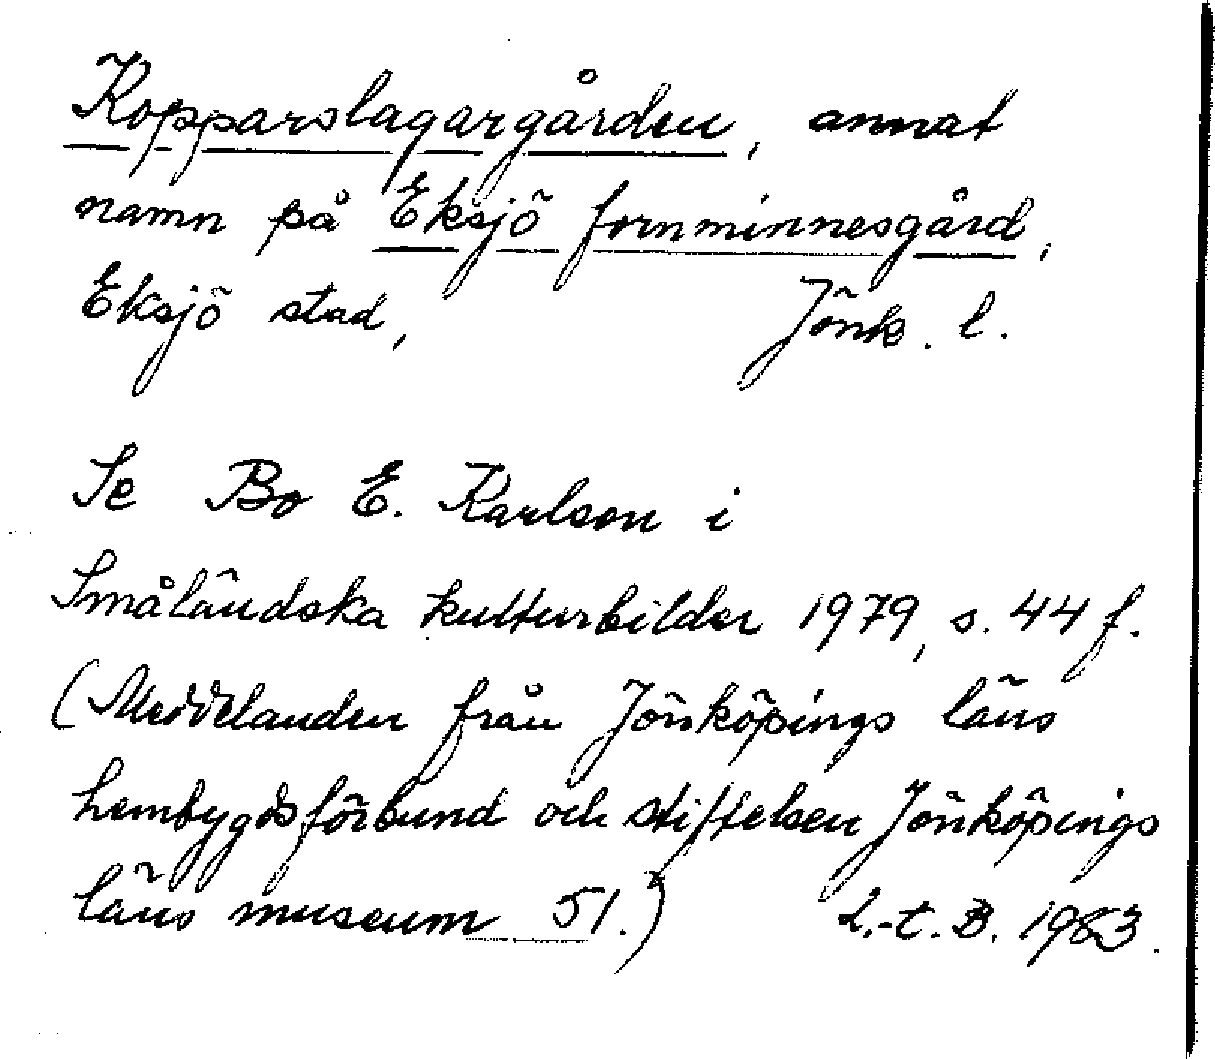 Kopparslagargården, annat
namn på Eksjö fornminnesgård,
Eksjö stad, Jönk. l.
Se Bo E. Karlson i
Småländska kulturbilder 1979, s. 44 f.
(Meddelanden från Jönköpings läns
hembygdsförbund och stiftelsen Jönköpings
läns museum 51.) L.-t. B. 1983.